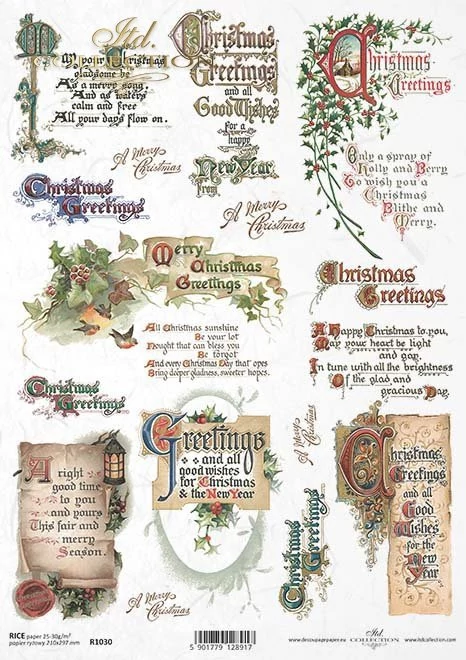 Itd.
COLLECTION
May your Christmas
gladsome be
As a merry song,
And as waters
calm and free
All your days flow on.
Christmas
Greetings
and all
Good Wishes
for a
happy
New Year
from
Christmas
Greetings
Only a spray of
Holly and Berry
To wish you a
Christmas
Blithe and
Merry.
A Merry
Christmas
Christmas
Greetings
A Merry
Christmas
Merry
Christmas
Greetings
All Christmas sunshine
Be your lot
Nought that can bless you
Be forgot
And every Christmas Day that opes
Bring deeper gladness, sweeter hopes.
Christmas
Greetings
A Happy Christmas to you,
May your heart be light
and gay,
In tune with all the brightness
Of the glad and
gracious Day.
Christmas
Greetings
A right
good time
to you
and yours
This fair and
merry
Season.
Greetings
and all
good wishes
for Christmas
& the New Year
A Merry
Christmas
Christmas
Greetings
Christmas
Greetings
and all
Good
Wishes
for the
New
Year
A Merry
Christmas
RICE paper 25-30g/m²
papier ryżowy 210x297 mm
R1030
5 901779 128917
www.decoupagepaper.eu
Itd.
COLLECTION
www.itdcollection.com